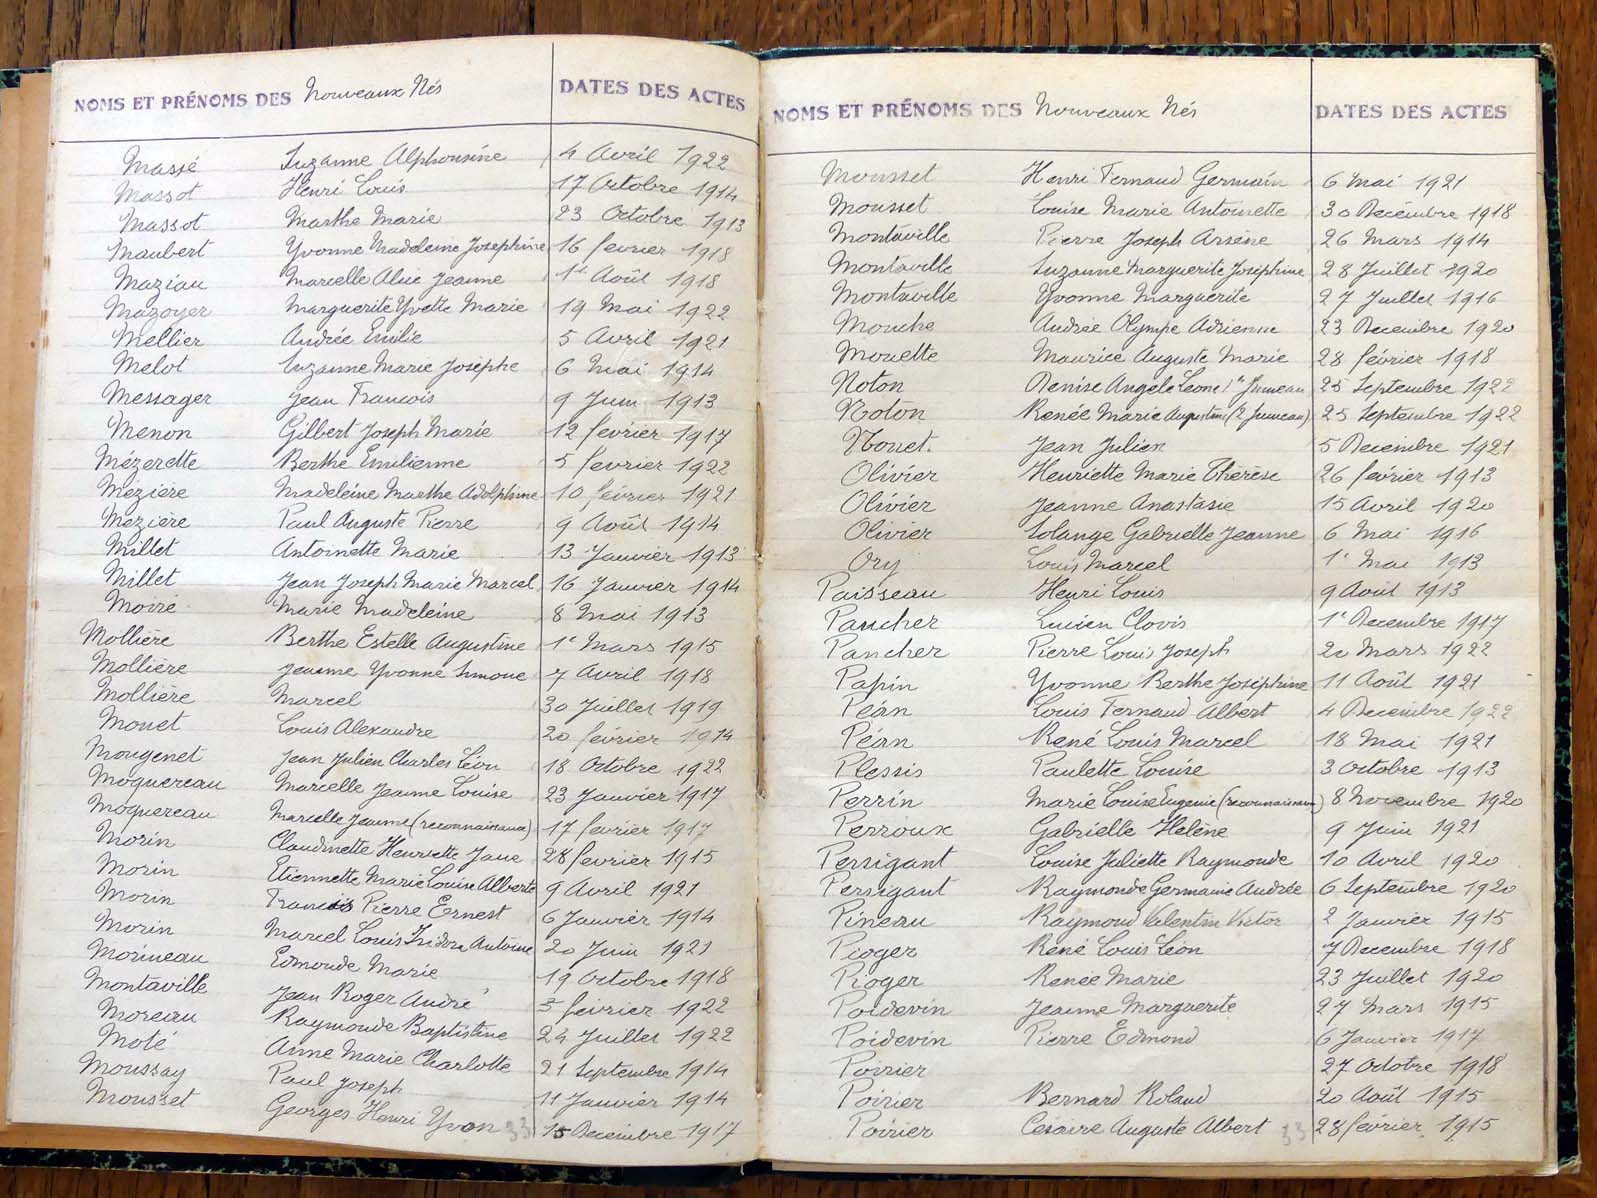 NOMS ET PRÉNOMS DES Nouveaux Nés DATES DES ACTES
Massé Suzanne Alphonsine 4 Avril 1922
Massot Henri Louis 17 Octobre 1914
Massot Marthe Marie 23 Octobre 1913
Maubert Yvonne Madeleine Josephine 16 fevrier 1918
Maziau Marcelle Alice Jeanne 1er Août 1918
Mazoyer Marguerite Yvette Marie 19 Mai 1922
Mellier Andrée Emilie 5 Avril 1921
Melot Suzanne Marie Josèphe 6 Mai 1914
Messager Jean Francois 9 Juin 1913
Menon Gilbert Joseph Marie 12 fevrier 1917
Mézerette Berthe Emilienne 5 fevrier 1922
Mézière Madeleine Marthe Adolphine 10 février 1921
Mezière Paul Auguste Pierre 9 Août 1914
Millet Antoinette Marie 13 Janvier 1913
Millet Jean Joseph Marie Marcel 16 Janvier 1914
Moiré Marie Madeleine 8 Mai 1913
Mollière Berthe Estelle Augustine 1e Mars 1915
Mollière Jeanne Yvonne Simone 7 Avril 1918
Mollière Marcel 30 Juillet 1919
Monet Louis Alexandre 20 fevrier 1914
Mougenet Jean Julien Charles Léon 18 Octobre 1922
Moquereau Marcelle Jeanne Louise 23 Janvier 1917
Moquereau Marcelle Jeanne (reconnaissance) 17 fevrier 1917
Morin Claudinette Henriette Jane 28 fevrier 1915
Morin Etiennette Marie Louise Alberte 9 Avril 1921
Morin Francis Pierre Ernest 6 Janvier 1914
Morin Marcel Louis Isidore Antoine 20 Juin 1921
Morineau Edmonde Marie 19 Octobre 1918
Montaville Jean Roger André 5 février 1922
Moreau Raymonde Baptistine 24 Juillet 1922
Moté Anne Marie Charlotte 21 Septembre 1914
Moussay Paul Joseph 11 Janvier 1914
Mousset Georges Henri Yvon 33 15 Decembre 1917
NOMS ET PRÉNOMS DES Nouveaux Nés DATES DES ACTES
Mousset Henri Fernand Germain 6 Mai 1921
Mousset Louise Marie Antoinette 30 Decembre 1918
Montaville Pierre Joseph Arsène 26 Mars 1914
Montaville Suzanne Marguerite Joséphine 28 Juillet 1920
Montaville Yvonne Marguerite 27 Juillet 1916
Mouche Andrée Olympe Adrienne 23 Decembre 1920
Mouette Maurice Auguste Marie 28 février 1918
Noton Denise Angèle Leone 1er Jumeau 25 Septembre 1922
Noton Renée Marie Augustine (2 Jumeau) 25 Septembre 1922
Nouet. Jean Julien 5 Decembre 1921
Olivier Henriette Marie Thérèse 26 février 1913
Olivier Jeanne Anastasie 15 Avril 1920
Olivier Solange Gabrielle Jeanne 6 Mai 1916
Ory Louis Marcel 1e Mai 1913
Paisseau Henri Louis 9 Août 1913
Pancher Lucien Clovis 1e Decembre 1917
Pancher Pierre Louis Joseph 20 Mars 1922
Papin Yvonne Berthe Joséphine 11 Août 1921
Péan Louis Fernand Albert 4 Decembre 1922
Péan René Louis Marcel 18 Mai 1921
Plessis Paulette Louise 3 Octobre 1913
Perrin Marie Louise Eugenie (reconnaissance) 8 Novembre 1920
Perroux Gabrielle Helène 9 Juin 1921
Persigant Louise Juliette Raymonde 10 Avril 1920
Persigant Raymonde Germaine Andrée 6 Septembre 1920
Pineau Raymond Valentin Victor 2 Janvier 1915
Pioger René Louis Léon 7 Decembre 1918
Pioger Renée Marie 23 Juillet 1920
Poidevin Jeanne Marguerite 27 Mars 1915
Poidevin Pierre Edmond 6 Janvier 1917
Poirier 27 Octobre 1918
Poirier Bernard Roland 20 Août 1915
Poirier Césaire Auguste Albert 33 28 février 1915